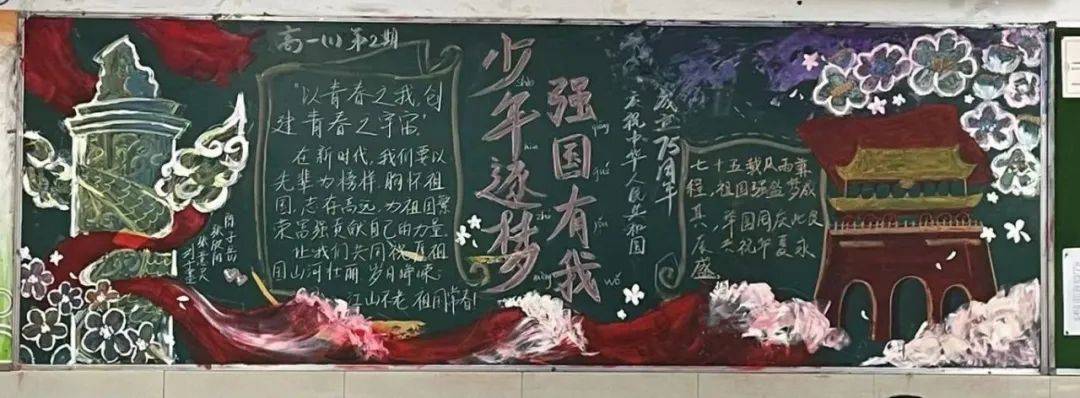 高一(1) 第2期
"以青春之我,创
建青春之宇宙"
在新时代,我们要以
先辈为榜样.胸怀祖
国,志存高远,为祖国繁
荣富强贡献自己的力量
让我们共同祝愿祖
国山河壮丽 岁月峥嵘
江山不老 祖国常春!
少年逐梦
强国有我
庆祝中华人民共和国
成立75周年
七十五载风雨兼
程,祖国强盛梦成
真,举国同庆此良
辰,共祝华夏永
盛